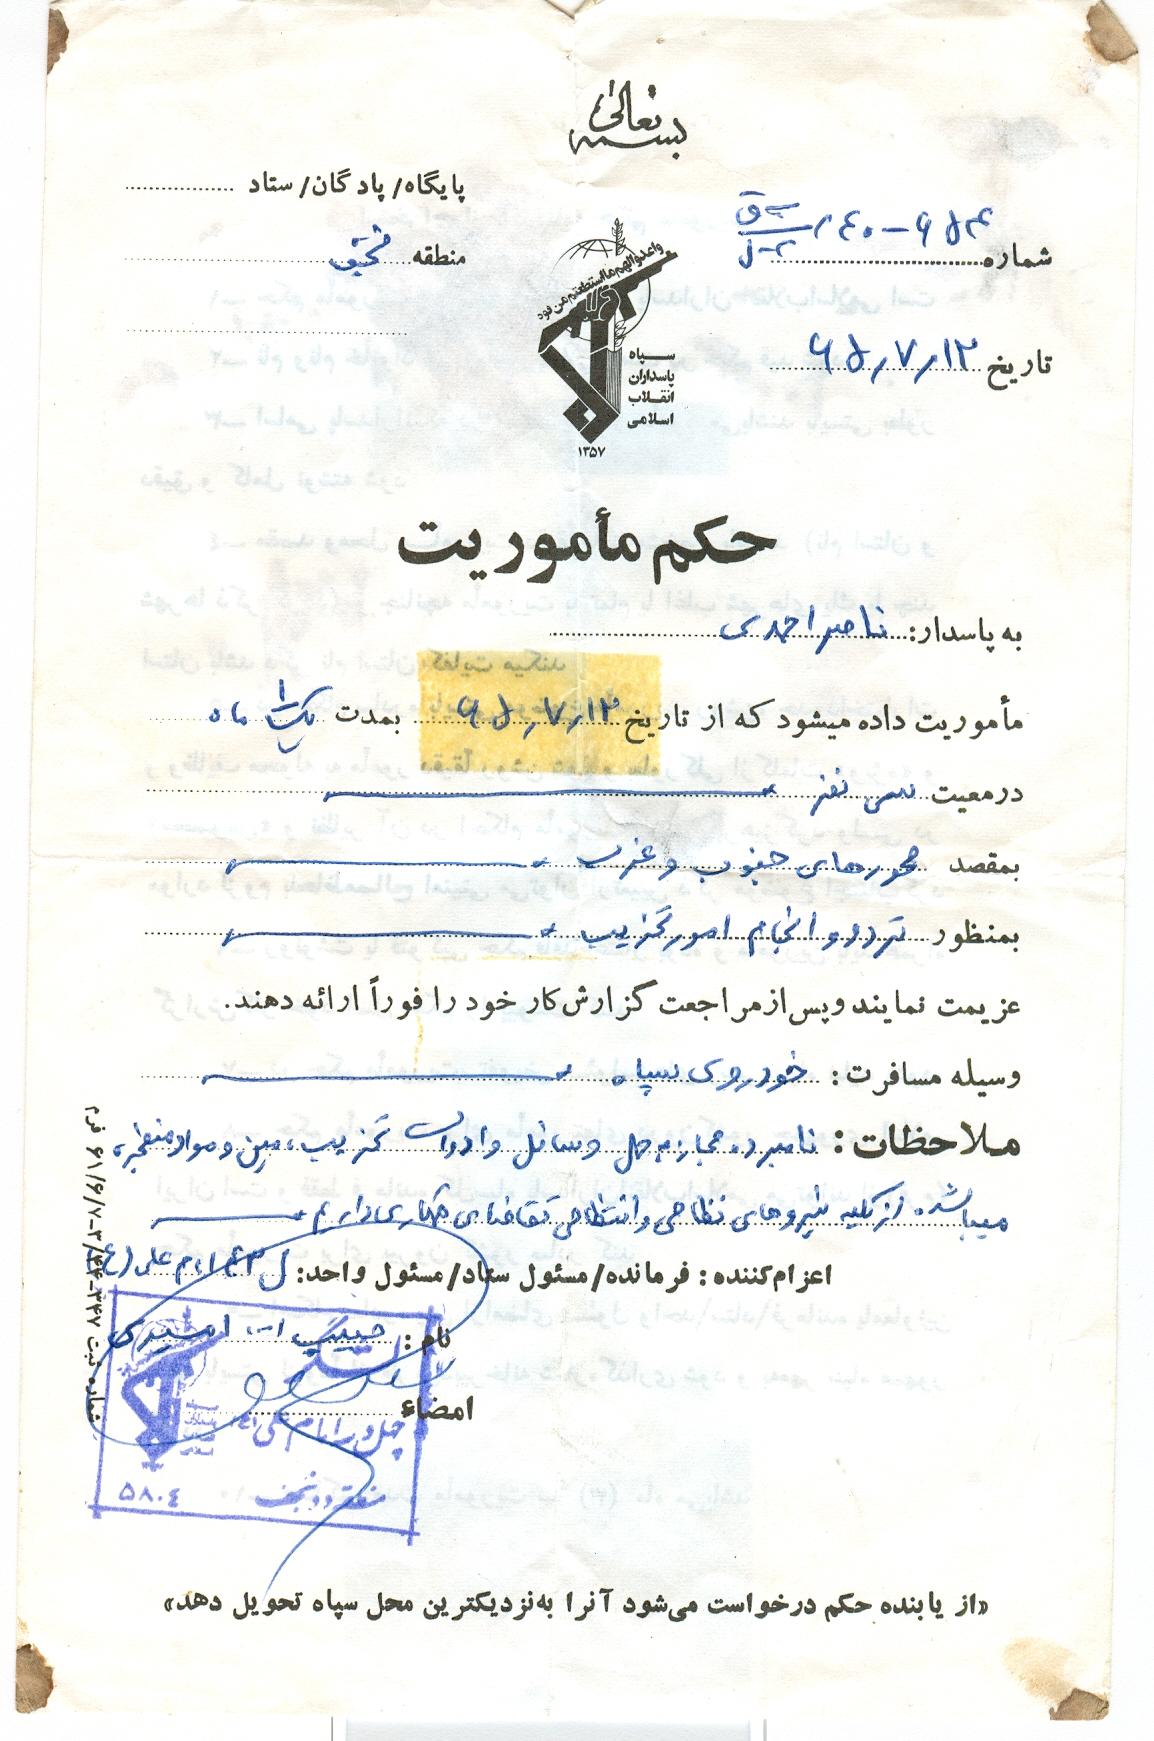 بسمه تعالی
پایگاه/ پادگان/ ستاد
شماره
منطقه
واعدوالهم مااستطعتم من قوه
سپاه
پاسداران
انقلاب
اسلامی
۱۳۵۷
تاریخ ۶۵٫۷٫۱۲
حکم مأموریت
به پاسدار: ناصر احمدی
مأموریت داده میشود که از تاریخ ۶۵٫۷٫۱۲ بمدت یک ماه
درمعیت سی نفر
بمقصد محورهای جنوب و غرب
بمنظور تردد و انجام امور تخریب
عزیمت نمایند و پس از مراجعت گزارش کار خود را فوراً ارائه دهند.
وسیله مسافرت: خودروی سپاه
ملاحظات: نامبرده مجاز به حمل وسائل و ادوات تخریب، مین و مواد منفجره
میباشد. از کلیه نیروهای نظامی و انتظامی تقاضای همکاری داریم
اعزام‌کننده: فرمانده/ مسئول ستاد/ مسئول واحد: ل ۴۳ امام علی (ع)
نام: حبیب ا...
امضاء
لشکر
۵۸۰۴
شماره ثبت ۳۴۷-۳/۴۴-۶۱/۶/۷ فرم
«از یابنده حکم درخواست می‌شود آنرا به نزدیکترین محل سپاه تحویل دهد»